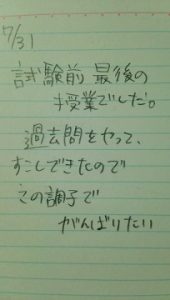 7/31
試験前 最後の
授業でした。
過去問をやって、
すこしできたので
この調子で
がんばりたい